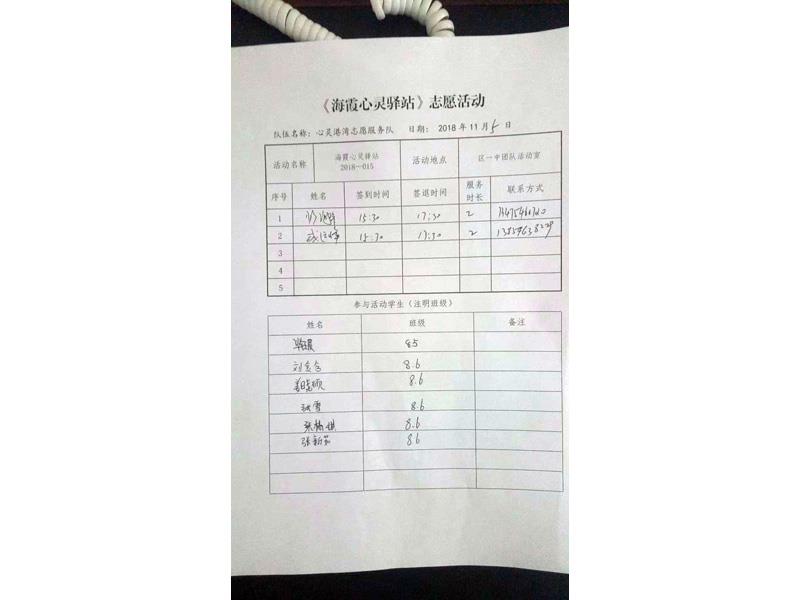 《海霞心灵驿站》志愿活动
队伍名称：心灵港湾志愿服务队 日期： 2018 年 11 月 5 日
活动名称 海霞心灵驿站 2018～015 活动地点 区一中团队活动室
序号 姓名 签到时间 签退时间 服务时长 联系方式
1 15:30 17:30 2
2 15:30 17:30 2
3
4
5
参与活动学生（注明班级）
姓名 班级 备注
8.5
刘含含 8.6
姜晓硕 8.6
8.6
8.6
张新茹 8.6